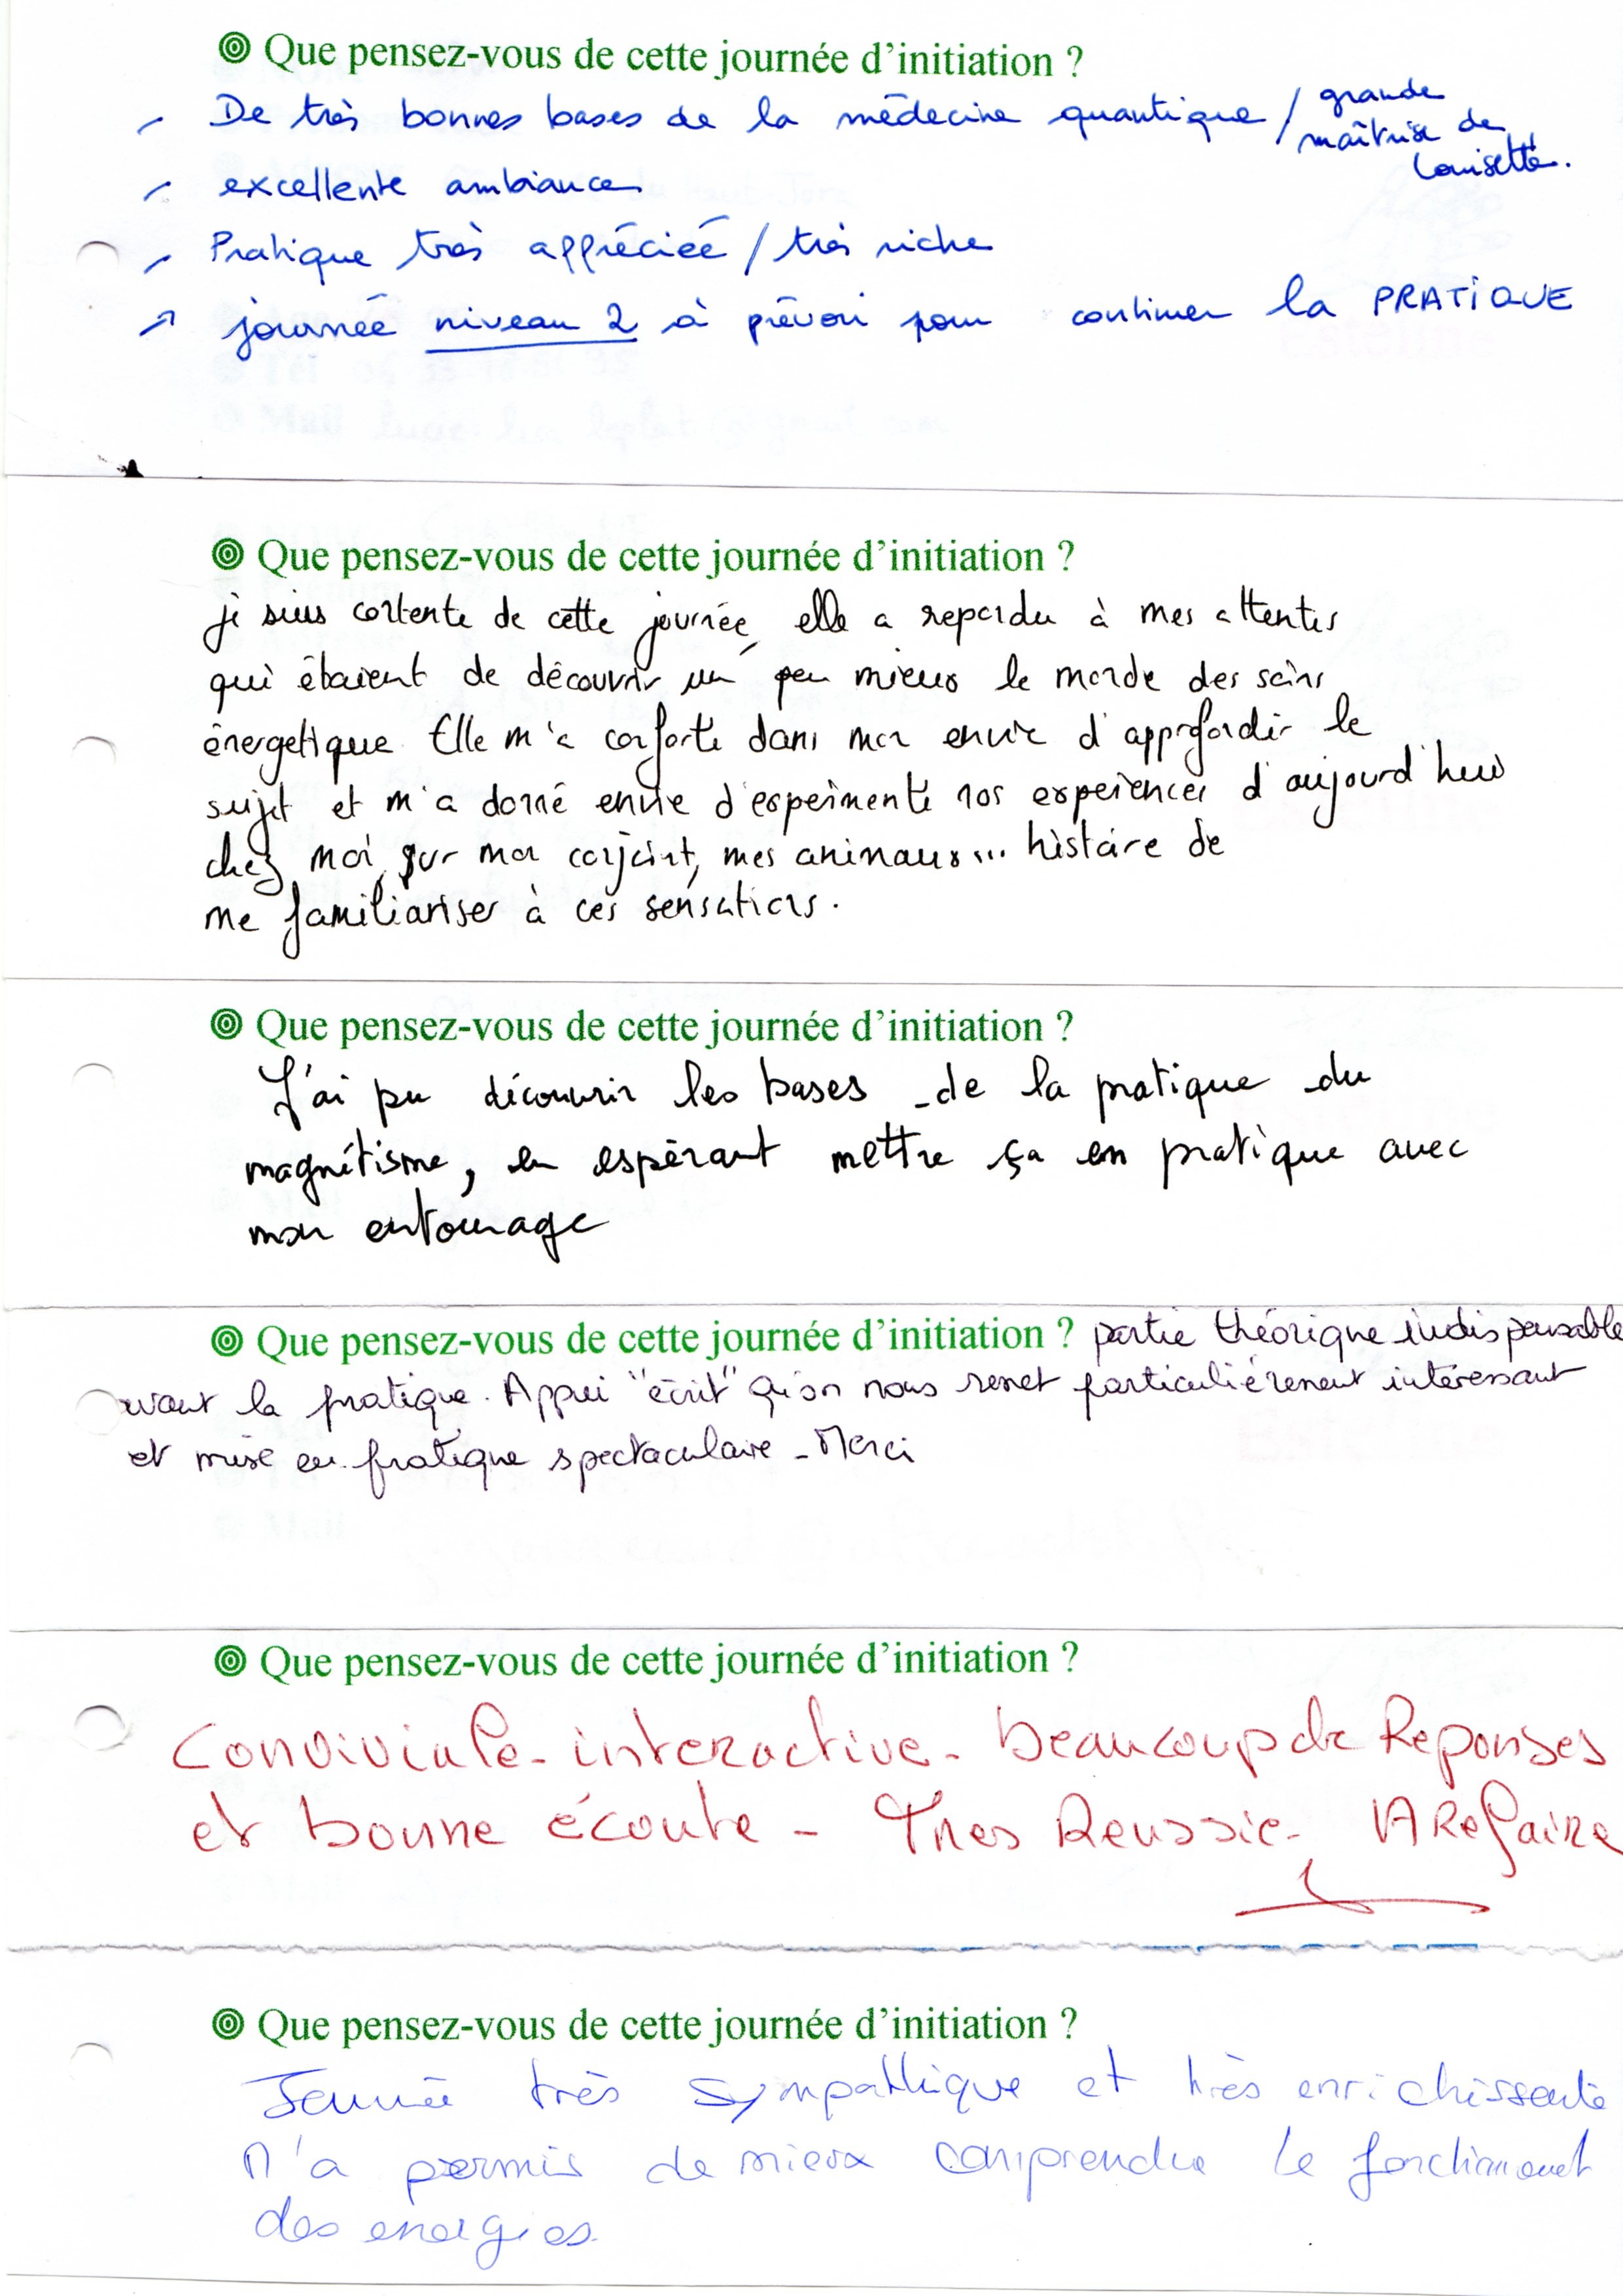 Que pensez-vous de cette journée d'initiation ?
- De très bonnes bases de la médecine quantique / grande maîtrise de Louisette.
- excellente ambiance
- Pratique très appréciée / très riche
- journée niveau 2 à prévoir pour continuer la PRATIQUE
Que pensez-vous de cette journée d'initiation ?
je suis contente de cette journée, elle a repondu à mes attentes
qui étaient de découvrir un peu mieux le monde des soins
énergetique. Elle m'a conforté dans mon envie d'approfondir le
sujet et m'a donné envie d'experimenté nos experiences d'aujourd'hui
chez moi, sur mon conjoint, mes animaux... histoire de
me familiariser à ces sensations.
Que pensez-vous de cette journée d'initiation ?
J'ai pu découvrir les bases de la pratique du
magnétisme, en espérant mettre ça en pratique avec
mon entourage
Que pensez-vous de cette journée d'initiation ? partie théorique indispensable
avant la pratique. Appui "écrit" qu'on nous remet particulièrement intéressant
et mise en pratique spectaculaire - Merci
Que pensez-vous de cette journée d'initiation ?
Conviviale - interactive - beaucoup de Reponses
et bonne écoute - Tres Reussie - A Refaire
Que pensez-vous de cette journée d'initiation ?
Journée très sympathique et très enrichissante
M'a permis de mieux comprendre le fonctionnement
des energies.